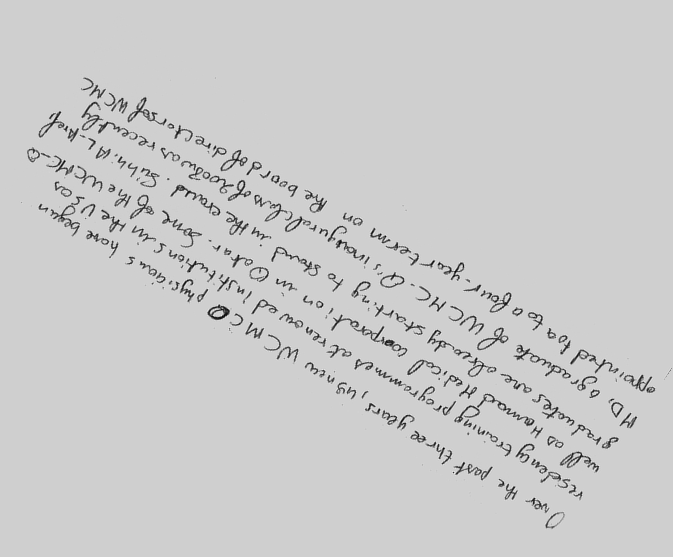 Over the past three years, 49 new WCMCQ physicians have begun
resideny training programmes at renowed institutions in the US as
well as Hamad Medical corporation in Qatar. Some of the WCMC-Q
graduates are already starting to stand in the croud. Subhi. AL-Aref.
MD, a graduate of WCMC-Q's inaugural class of 2008 was recently
appointed toa to a four-year term on the board of directorsof WCMC